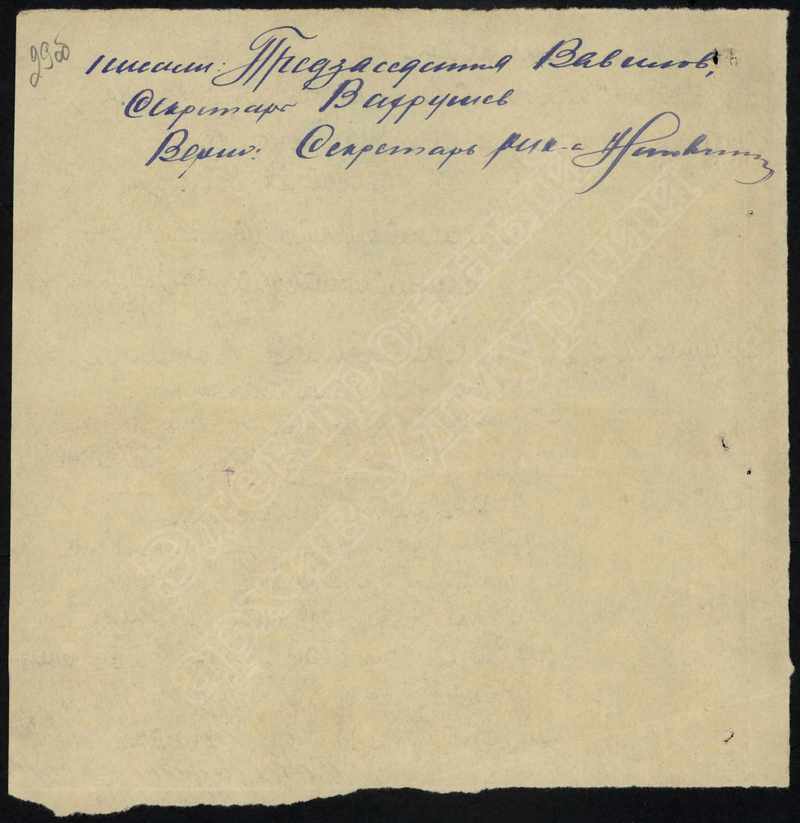 29об
писали: Предзаседания Вавилов,
Секретарь Вахрушев
Верно: Секретарь рик-а
Электронный
архив Удмуртии